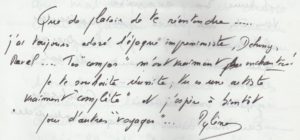 Que de plaisir de te réentendre .....
j'ai toujours adoré l'époque impressionniste, Debussy,
Ravel ... Tes compos " m'ont vraiment plus enchantée
Je te souhaite réussite, tu es une artiste
vraiment "complète" et j'espère à bientôt
pour d'autres "voyages" ...